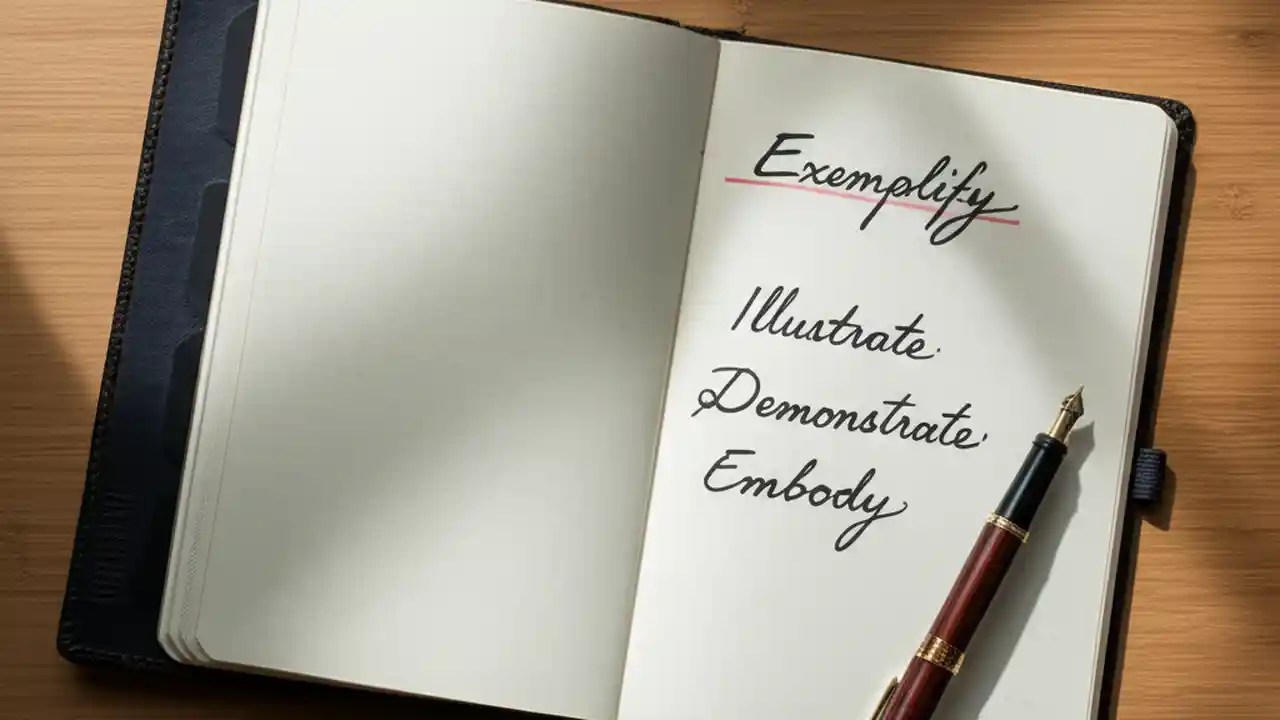 Exemplify
Illustrate
Demonstrate
Embody